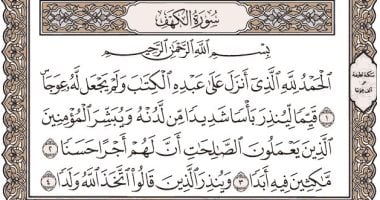 سُورَةُ الْكَهْفِ
بِسْمِ اللَّهِ الرَّحْمَٰنِ الرَّحِيمِ
الْحَمْدُ لِلَّهِ الَّذِي أَنزَلَ عَلَىٰ عَبْدِهِ الْكِتَٰبَ وَلَمْ يَجْعَل لَّهُۥ عِوَجَاۜ
١ قَيِّمًا لِّيُنذِرَ بَأْسًا شَدِيدًا مِّن لَّدُنْهُ وَيُبَشِّرَ الْمُؤْمِنِينَ
الَّذِينَ يَعْمَلُونَ الصَّٰلِحَٰتِ أَنَّ لَهُمْ أَجْرًا حَسَنًا ٢
مَّٰكِثِينَ فِيهِ أَبَدًا ٣ وَيُنذِرَ الَّذِينَ قَالُوا۟ اتَّخَذَ اللَّهُ وَلَدًا ٤
سكتة لطيفة